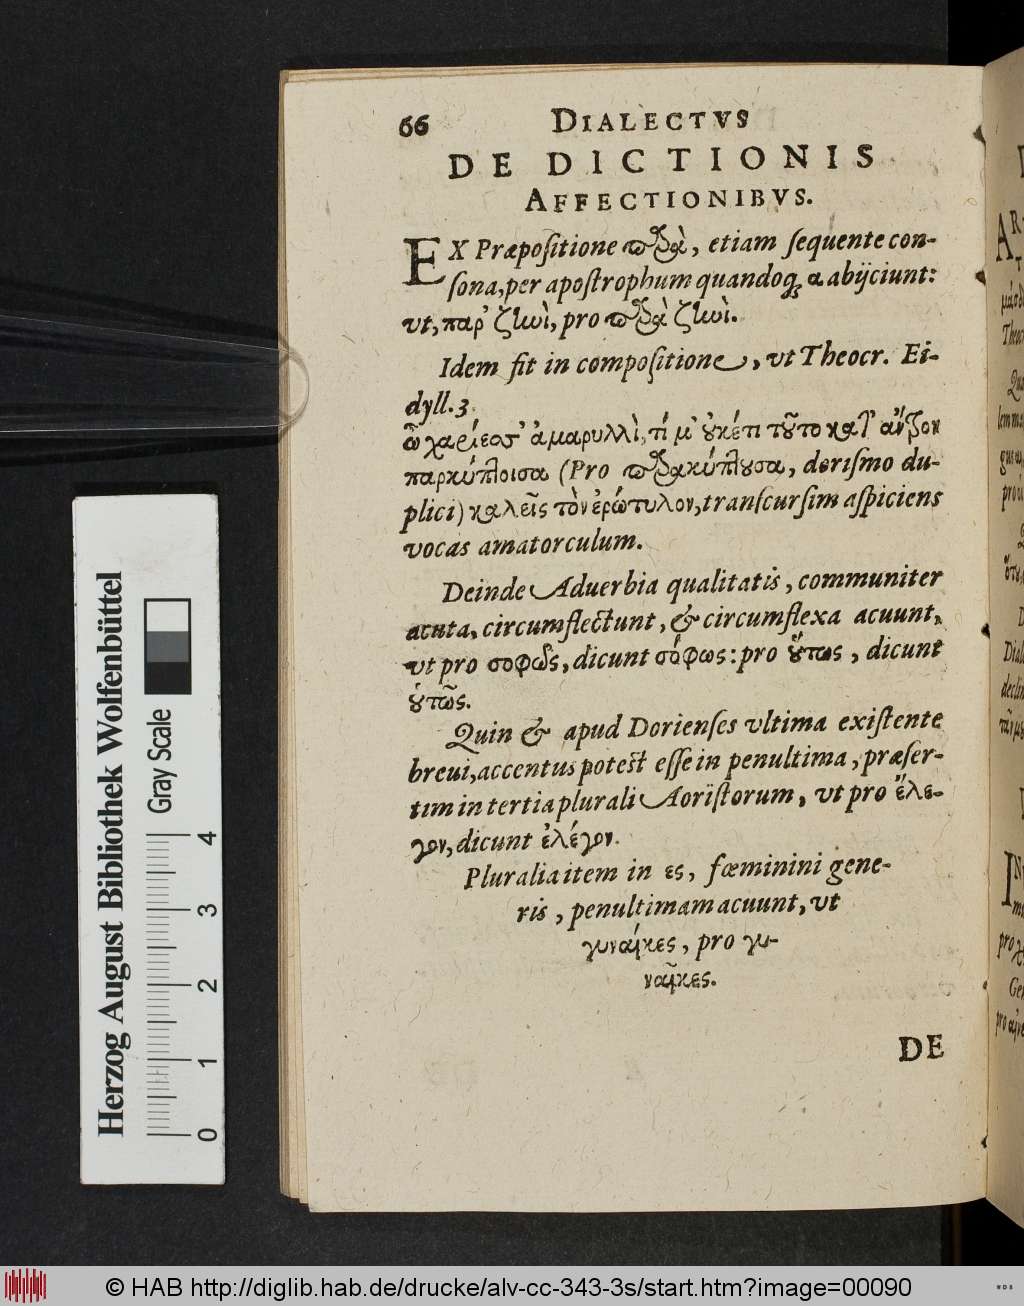 66 DIALECTVS
DE DICTIONIS
AFFECTIONIBVS.
EX Præpositione παρὰ, etiam sequente con-
sona, per apostrophum quandoq; α abijciunt:
vt, παρ' ζηνὶ, pro παρὰ ζηνὶ.
Idem fit in compositione, vt Theocr. Ei-
dyll. 3.
ὦ χαρίεσσ' ἀμαρυλλὶ, τί μ' ȣ̓κέτι τȣ͂το κατ' ἄντρον
παρκύπτοισα (Pro παρακύπτȣσα, dorismo du-
plici) καλεῖς τὸν ἐρώτυλον, transcursim aspiciens
vocas amatorculum.
Deinde Aduerbia qualitatis, communiter
acuta, circumflectunt, & circumflexa acuunt,
vt pro σοφῶς, dicunt σόφως: pro ȣ̔́τως, dicunt
ȣ̔τῶς.
Quin & apud Dorienses vltima existente
breui, accentus potest esse in penultima, præser-
tim in tertia plurali Aoristorum, vt pro ἔλε-
γον, dicunt ἐλέγον.
Pluralia item in ες, fœminini gene-
ris, penultimam acuunt, vt
γυναίκες, pro γυ-
ναῖκες.
DE
Herzog August Bibliothek Wolfenbüttel
Gray Scale
0 1 2 3 4
© HAB http://diglib.hab.de/drucke/alv-cc-343-3s/start.htm?image=00090